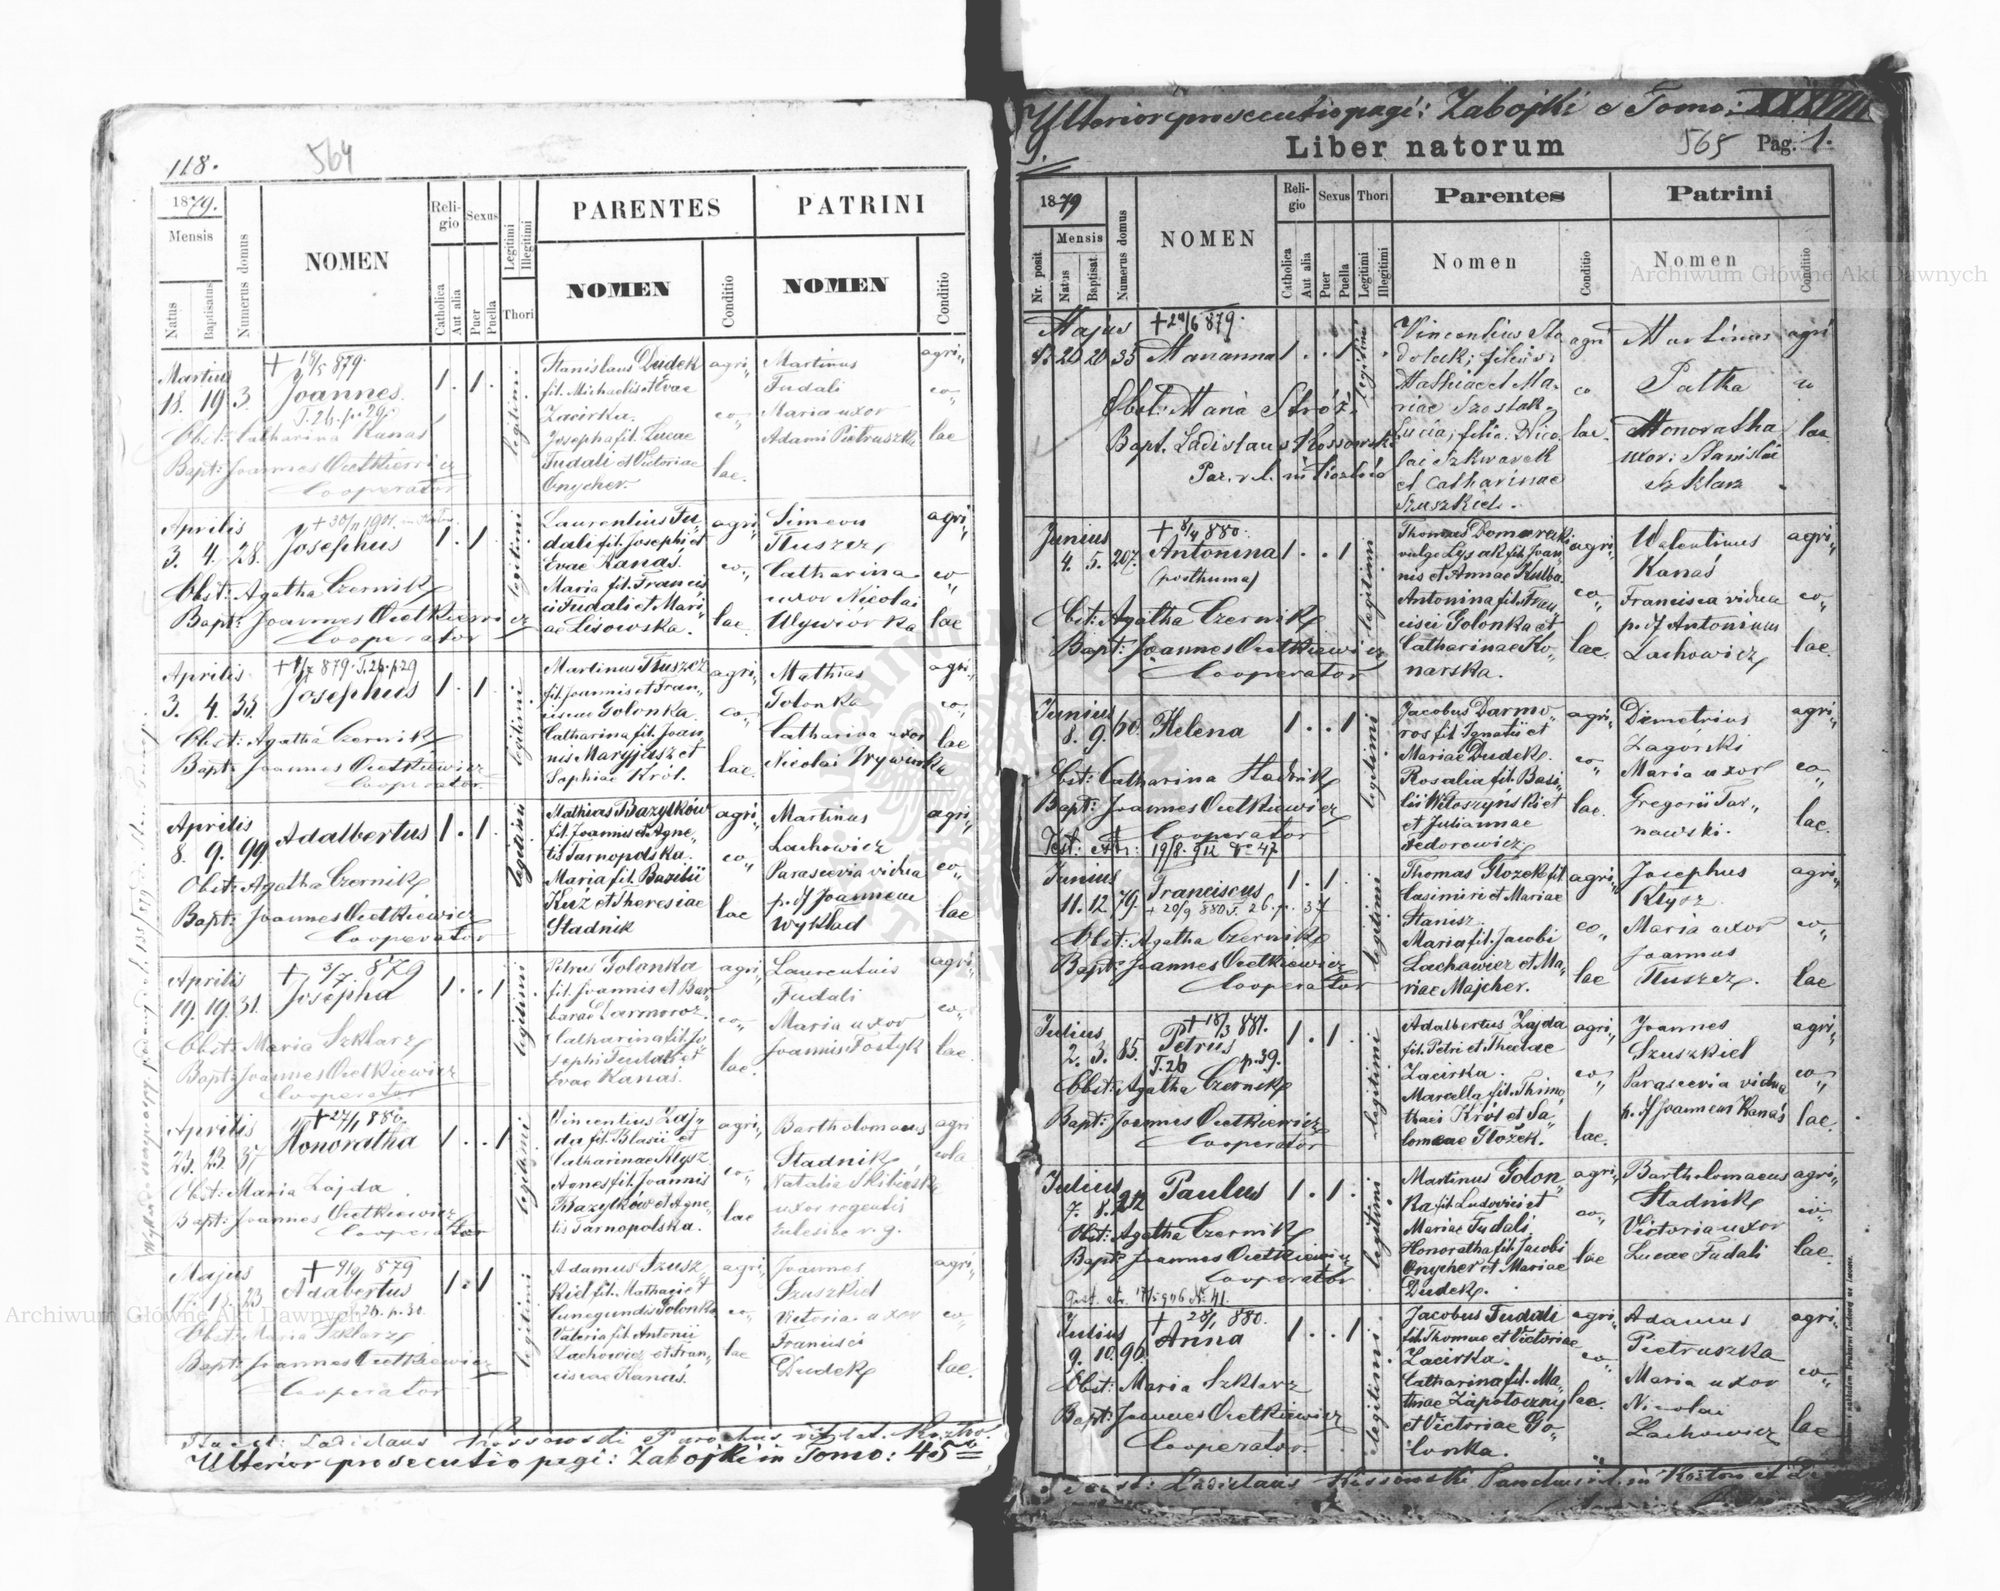 118.
564
1879.
Mensis
Natus
Baptisatus
Numerus domus
NOMEN
Religio
Catholica
Aut alia
Sexus
Puer
Puella
Legitimi
Illegitimi
Thori
PARENTES
NOMEN
Conditio
PATRINI
NOMEN
Conditio
Martius
18. 19. 3.
+ 18/5 879.
Joannes
T.26.p.29.
1. 1.
legitimi
Obst: Catharina Kanas
Bapt: Joannes Oretkiewicz
Cooperator
Stanislaus Dudek
fil. Michaelis et Evae
Zacirka.
Josepha fil. Lucae
Fudali et Victoriae
Onycher.
agri„
co„
lac.
Martinus
Fudali
Maria uxor
Adami Pietruszka
agri„
co„
lae
Aprilis
3. 4. 28.
Josephus
1. 1.
legitimi
Obst: Agatha Czernik
Bapt: Joannes Oretkiewicz
Cooperator
Laurentius Fu„
dali fil. Josephi et
Evae Kanas.
Maria fil. Francis„
ci Fudali et Mari„
ae Lisowska.
agri„
co„
lac
Simeon
Tluszcz
Catharina
uxor Nicolai
Wywiórka
agri„
co„
lae
Aprilis
3. 4. 33.
879. T.26.p.29
Josephus
1. 1.
legitimi
Obst: Agatha Czernik
Bapt: Joannes Oretkiewicz
Cooperator
Martinus Tluszcz
fil. Joannis et Fran„
ciscae Golonka.
Catharina fil. Joan„
nis Maryjasz et
Sophiae Król.
agri„
co„
lac.
Mathias
Golonka
Catharina uxor
Nicolai Wywiorka
agri„
co„
lae
Aprilis
8. 9. 99.
Adalbertus
1. 1.
legitimi
Obst: Agatha Czernik
Bapt: Joannes Oretkiewicz
Cooperator
Mathias Bazylków
fil. Joannis et Agne„
tis Tarnopolska.
Maria fil. Basilii
Kuz et Theresiae
Stadnik
agri„
co„
lac
Martinus
Lachowicz
Parascevia vidua
p. d. Joannem
Wyklad
agri„
co„
lae
Aprilis
19. 19. 31.
+ 3/7. 879
Josepha
1. . 1
legitimi
Obst: Maria Szklarz
Bapt: Joannes Oretkiewicz
Cooperator
Petrus Golonka
fil. Joannis et Bar„
barae Darmoroz.
Catharina fil. Jo„
sephi Fudali et
Evae Kanas.
agri„
co„
lac.
Laurentius
Fudali
Maria uxor
Joannis Fostyk
agri„
co„
lac
Aprilis
23. 23. 37
+ 27/1 880.
Honoratha
1. . 1
legitimi
Obst: Maria Zajda
Bapt: Joannes Oretkiewicz
Cooperator
Vincentius Zaj„
da fil. Blasii et
Catharinae Klysz
Agnes fil. Joannis
Bazylków et Agne„
tis Tarnopolska.
agri„
co„
lac
Bartholomaeus
Stadnik
Natalia Skibińska
uxor regentis
Eclesiae r. g.
agri
cola
Majus
17. 18. 23
+ 9/9 879
Adalbertus
T.26. p. 30.
1. 1
legitimi
Obst: Maria Szklarz
Bapt: Joannes Oretkiewicz
Cooperator
Adamus Szusz„
kiel fil. Mathaei et
Cunegundis Golonka
Valeria fil. Antonii
Lachowicz et Fran„
ciscae Kanas.
agri„
co„
lae
Joannes
Szuszkiel
Victoria uxor
Francisci
Dudek
agri„
co„
lac.
Ladislaus Kossowski Parochus
Ulterior prosecutio pagi: Zabojki in Tomo: 45
Ulterior prosecutio pagi: Zabojki e Tomo: XXXVIII
Liber natorum
565 Pag. 1.
1879
Nr. posit.
Mensis
Natus
Baptisat.
Numerus domus
NOMEN
Religio
Catholica
Aut alia
Sexus
Puer
Puella
Thori
Legitimi
Illegitimi
Parentes
Nomen
Conditio
Patrini
Nomen
Conditio
Majus
20 20 35
+ 24/6 879.
Marianna
1. . 1
legitimi
Obst: Maria Stróż.
Bapt. Ladislaus Kossowski
Par. r. l. in Kozłów
Vincentius Sta
dolak; filius:
Mathiae et Ma.
riae Szostak.
Lucia, filia: Nico
lai Szkwarek
et Catharinae
Szuszkiel.
agri
co
lac.
Martinus
Palka
Honoratha
uxor: Stanislai
Szklarz
agri
co
lac
Junius
4. 5. 207.
+ 8/4 880.
Antonina
(posthuma)
1. . 1
legitimi
Obst: Agatha Czernik
Bapt: Joannes Oretkiewicz
Cooperator
Thomas Domaracki
vulgo Lysak fil. Joan„
nis et Annae Kulba
Antonina fil. Fran„
cisci Golonka et
Catharinae Ko„
narska.
agri„
co„
lac
Valentinus
Kanaś
Francisca vidua
p. d. Antonium
Lachowicz
agri„
co„
lac.
Junius
8. 9. 60.
Helena
1. . 1
legitimi
Obst: Catharina Stadnik
Bapt: Joannes Oretkiewicz
Cooperator
Test: etr: 19/8. 912 № 47
Jacobus Darmo„
ros fil. Ignatii et
Mariae Dudek.
Rosalia fil. Basi„
lii Wiloszyński et
et Juliannae
Fedorowicz
agri„
co„
lac.
Dimetrius
Zagórski
Maria uxor
Gregorii Tar„
nawski.
agri„
co„
lac.
Junius
11. 12. 79.
Franciscus
+ 20/9 880 T. 26. p. 37
1. 1.
legitimi
Obst: Agatha Czernik
Bapt: Joannes Oretkiewicz
Cooperator
Thomas Głozek fil.
Casimiri et Mariae
Stanisz.
Maria fil. Jacobi
Lachowicz et Ma„
riae Majcher.
agri„
co„
lac
Josephus
Klysz
Maria uxor
Joannis
Tluszcz.
agri„
co„
lac
Julius
2. 3. 85.
+ 18/3 881.
Petrus
T.26 p.39.
1. 1.
legitimi
Obst: Agatha Czernik
Bapt: Joannes Oretkiewicz
Cooperator
Adalbertus Zajda
fil. Petri et Theclae
Zacirka.
Marcella fil. Thimo„
thaei Król et Sa„
lomeae Głożek.
agri„
co„
lac.
Joannes
Szuszkiel
Parascevia vidua
p. d. Joannem Kanaś
agri„
co„
lac.
Julius
7. 8. 212
Paulus
1. 1.
legitimi
Obst: Agatha Czernik
Bapt: Joannes Oretkiewicz
Cooperator
Test. etr. 17/5 906 № 41.
Martinus Golon„
ka fil. Ludovici et
Mariae Fudali
Honoratha fil. Jacobi
Onycher et Mariae
Dudek.
agri„
co„
lac
Bartholomaeus
Stadnik
Victoria uxor
Lucae Fudali
agri„
co„
lac.
Julius
9. 10. 96.
+ 28/1 880.
Anna
1. . 1
legitimi
Obst: Maria Szklarz
Bapt: Joannes Oretkiewicz
Cooperator.
Jacobus Fudali
fil. Thomae et Victoriae
Zacirka.
Catharina fil. Ma„
thiae Zapotoczny
et Victoriae Go„
lonka.
agri„
co„
lac.
Adamus
Pietruszka
Maria uxor
Nicolai
Lachowicz
agri„
co„
lac
Ladislaus Kossowski Parochus r. l. in Kozłów
Archiwum Główne Akt Dawnych
Archiwum Główne Akt Dawnych